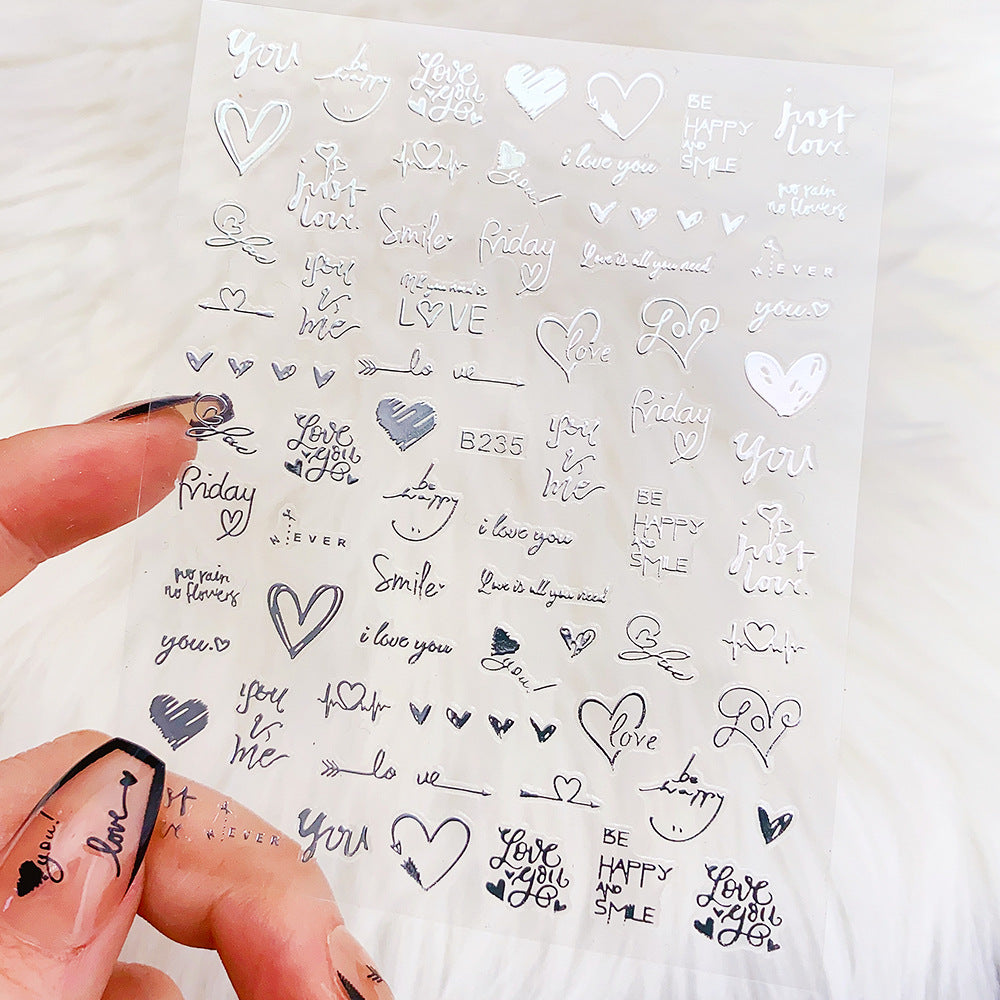 you
be
happy
Love
you
BE
HAPPY
AND
SMILE
just
love.
just
love.
you!
i love you
no rain
no flowers
Smile
friday
Love is all you need
NEVER
you
&
me
All you need is
LOVE
love
Love
you.
lo ve
Love
you
B235
you
&
me
friday
you
friday
be
happy
NEVER
i love you
BE
HAPPY
AND
SMILE
just
love.
no rain
no flowers
Smile
Love is all you need
you.
i love you
you!
you
&
me
love
Love
lo ve
be
happy
you!
love
NEVER
you
Love
you
BE
HAPPY
AND
SMILE
Love
you